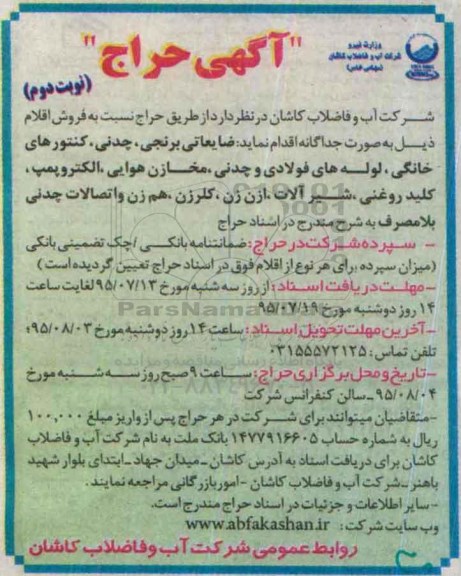 وزارت نیرو
شرکت آب و فاضلاب کاشان
(سهامی خاص)
"آگهی حراج"
(نوبت دوم)
شرکت آب و فاضلاب کاشان در نظر دارد از طریق حراج نسبت به فروش اقلام
ذیل به صورت جداگانه اقدام نماید: ضایعاتی برنجی، چدنی، کنتور های
خانگی، لوله های فولادی و چدنی، مخازن هوایی، الکتروپمپ،
کلید روغنی، شیر آلات، ازن زن، کلرزن، هم زن و اتصالات چدنی
بلامصرف به شرح مندرج در اسناد حراج
- سپرده شرکت در حراج: ضمانتنامه بانکی / چک تضمینی بانکی
(میزان سپرده برای هر نوع از اقلام فوق در اسناد حراج تعیین گردیده است)
-مهلت دریافت اسناد: از روز سه شنبه مورخ ۹۵/۰۷/۱۳ لغایت ساعت
۱۴ روز دوشنبه مورخ ۹۵/۰۷/۱۹
-آخرین مهلت تحویل اسناد: ساعت ۱۴ روز دوشنبه مورخ ۹۵/۰۸/۰۳؛
تلفن تماس: ۰۳۱۵۵۵۷۲۱۲۵
-تاریخ و محل برگزاری حراج: ساعت ۹ صبح روز سه شنبه مورخ
۹۵/۰۸/۰۴ -سالن کنفرانس شرکت
-متقاضیان میتوانند برای شرکت در هر حراج پس از واریز مبلغ ۱۰۰,۰۰۰
ریال به شماره حساب ۱۴۷۷۹۱۶۶۰۵ بانک ملت به نام شرکت آب و فاضلاب
کاشان برای دریافت اسناد به آدرس کاشان -میدان جهاد -ابتدای بلوار شهید
باهنر -شرکت آب و فاضلاب کاشان -امور بازرگانی مراجعه نمایند.
-سایر اطلاعات و جزئیات در اسناد حراج مندرج است.
وب سایت شرکت: www.abfakashan.ir
روابط عمومی شرکت آب و فاضلاب کاشان